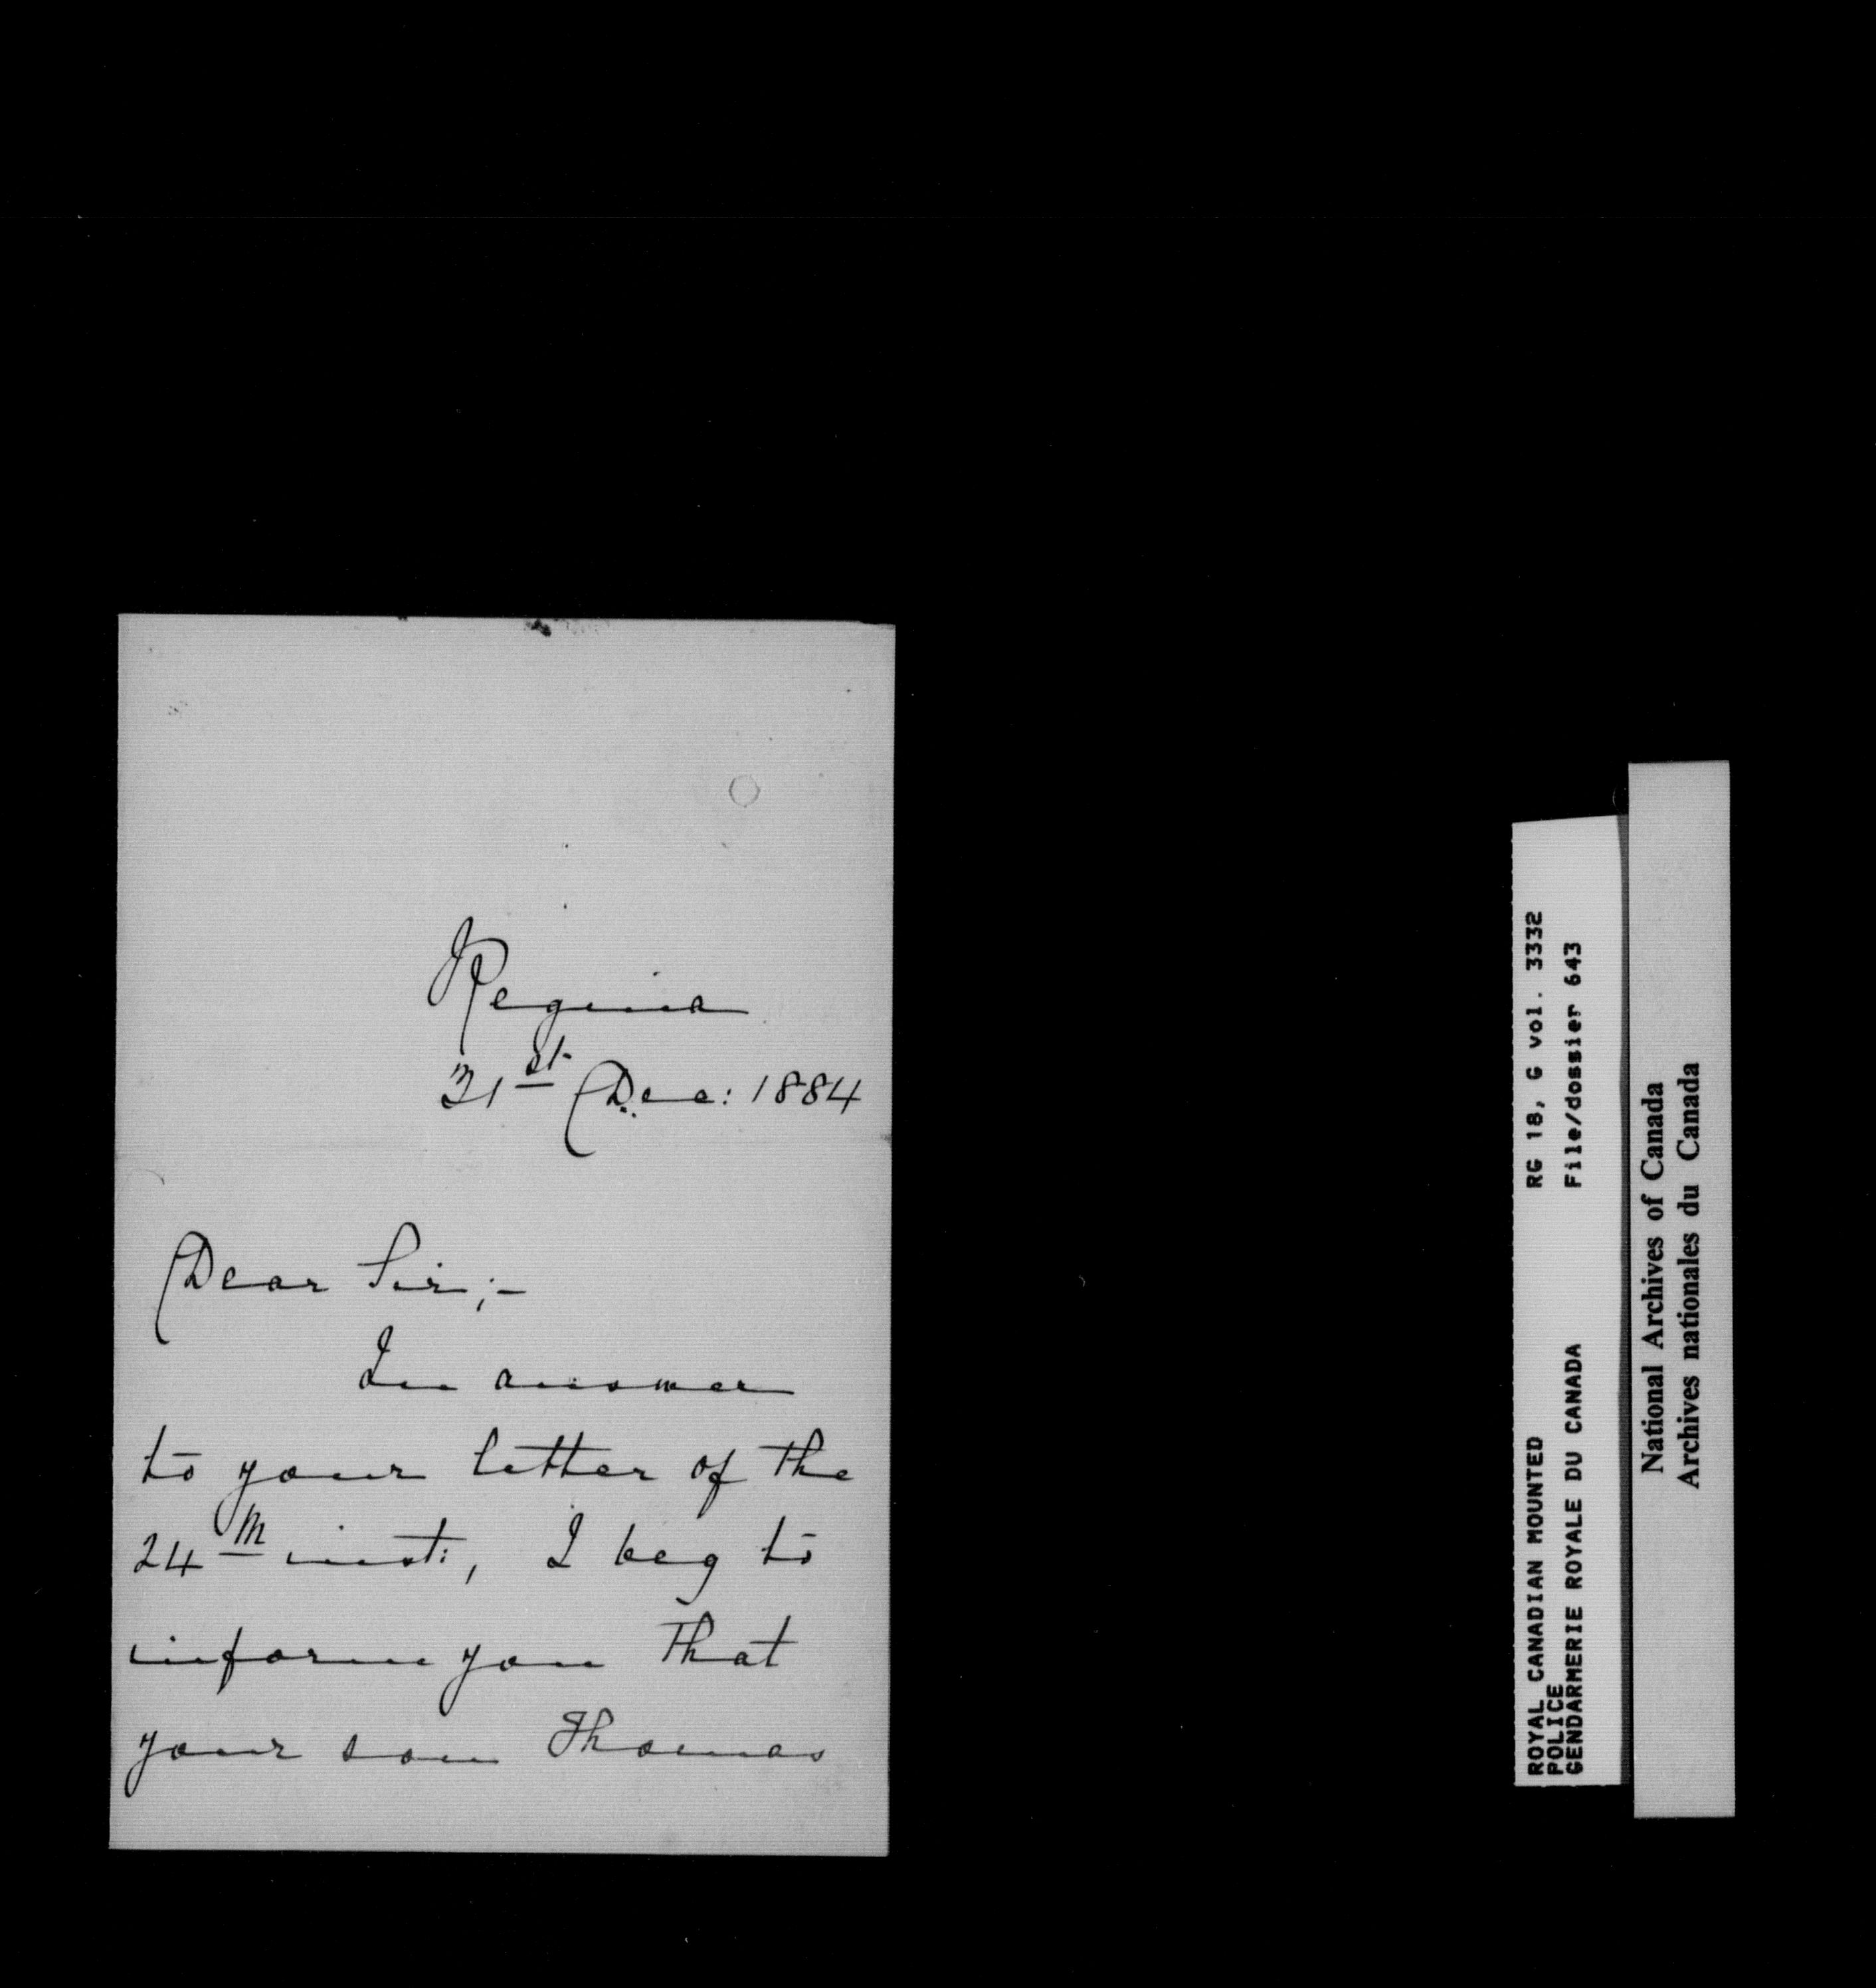 Regina
31st Dec: 1884
Dear Sir;-
In answer
to your letter of the
24th inst:, I beg to
inform you that
your son Thomas
ROYAL CANADIAN MOUNTED RG 18, G vol. 3332
POLICE
GENDARMERIE ROYALE DU CANADA File/dossier 643
National Archives of Canada
Archives nationales du Canada